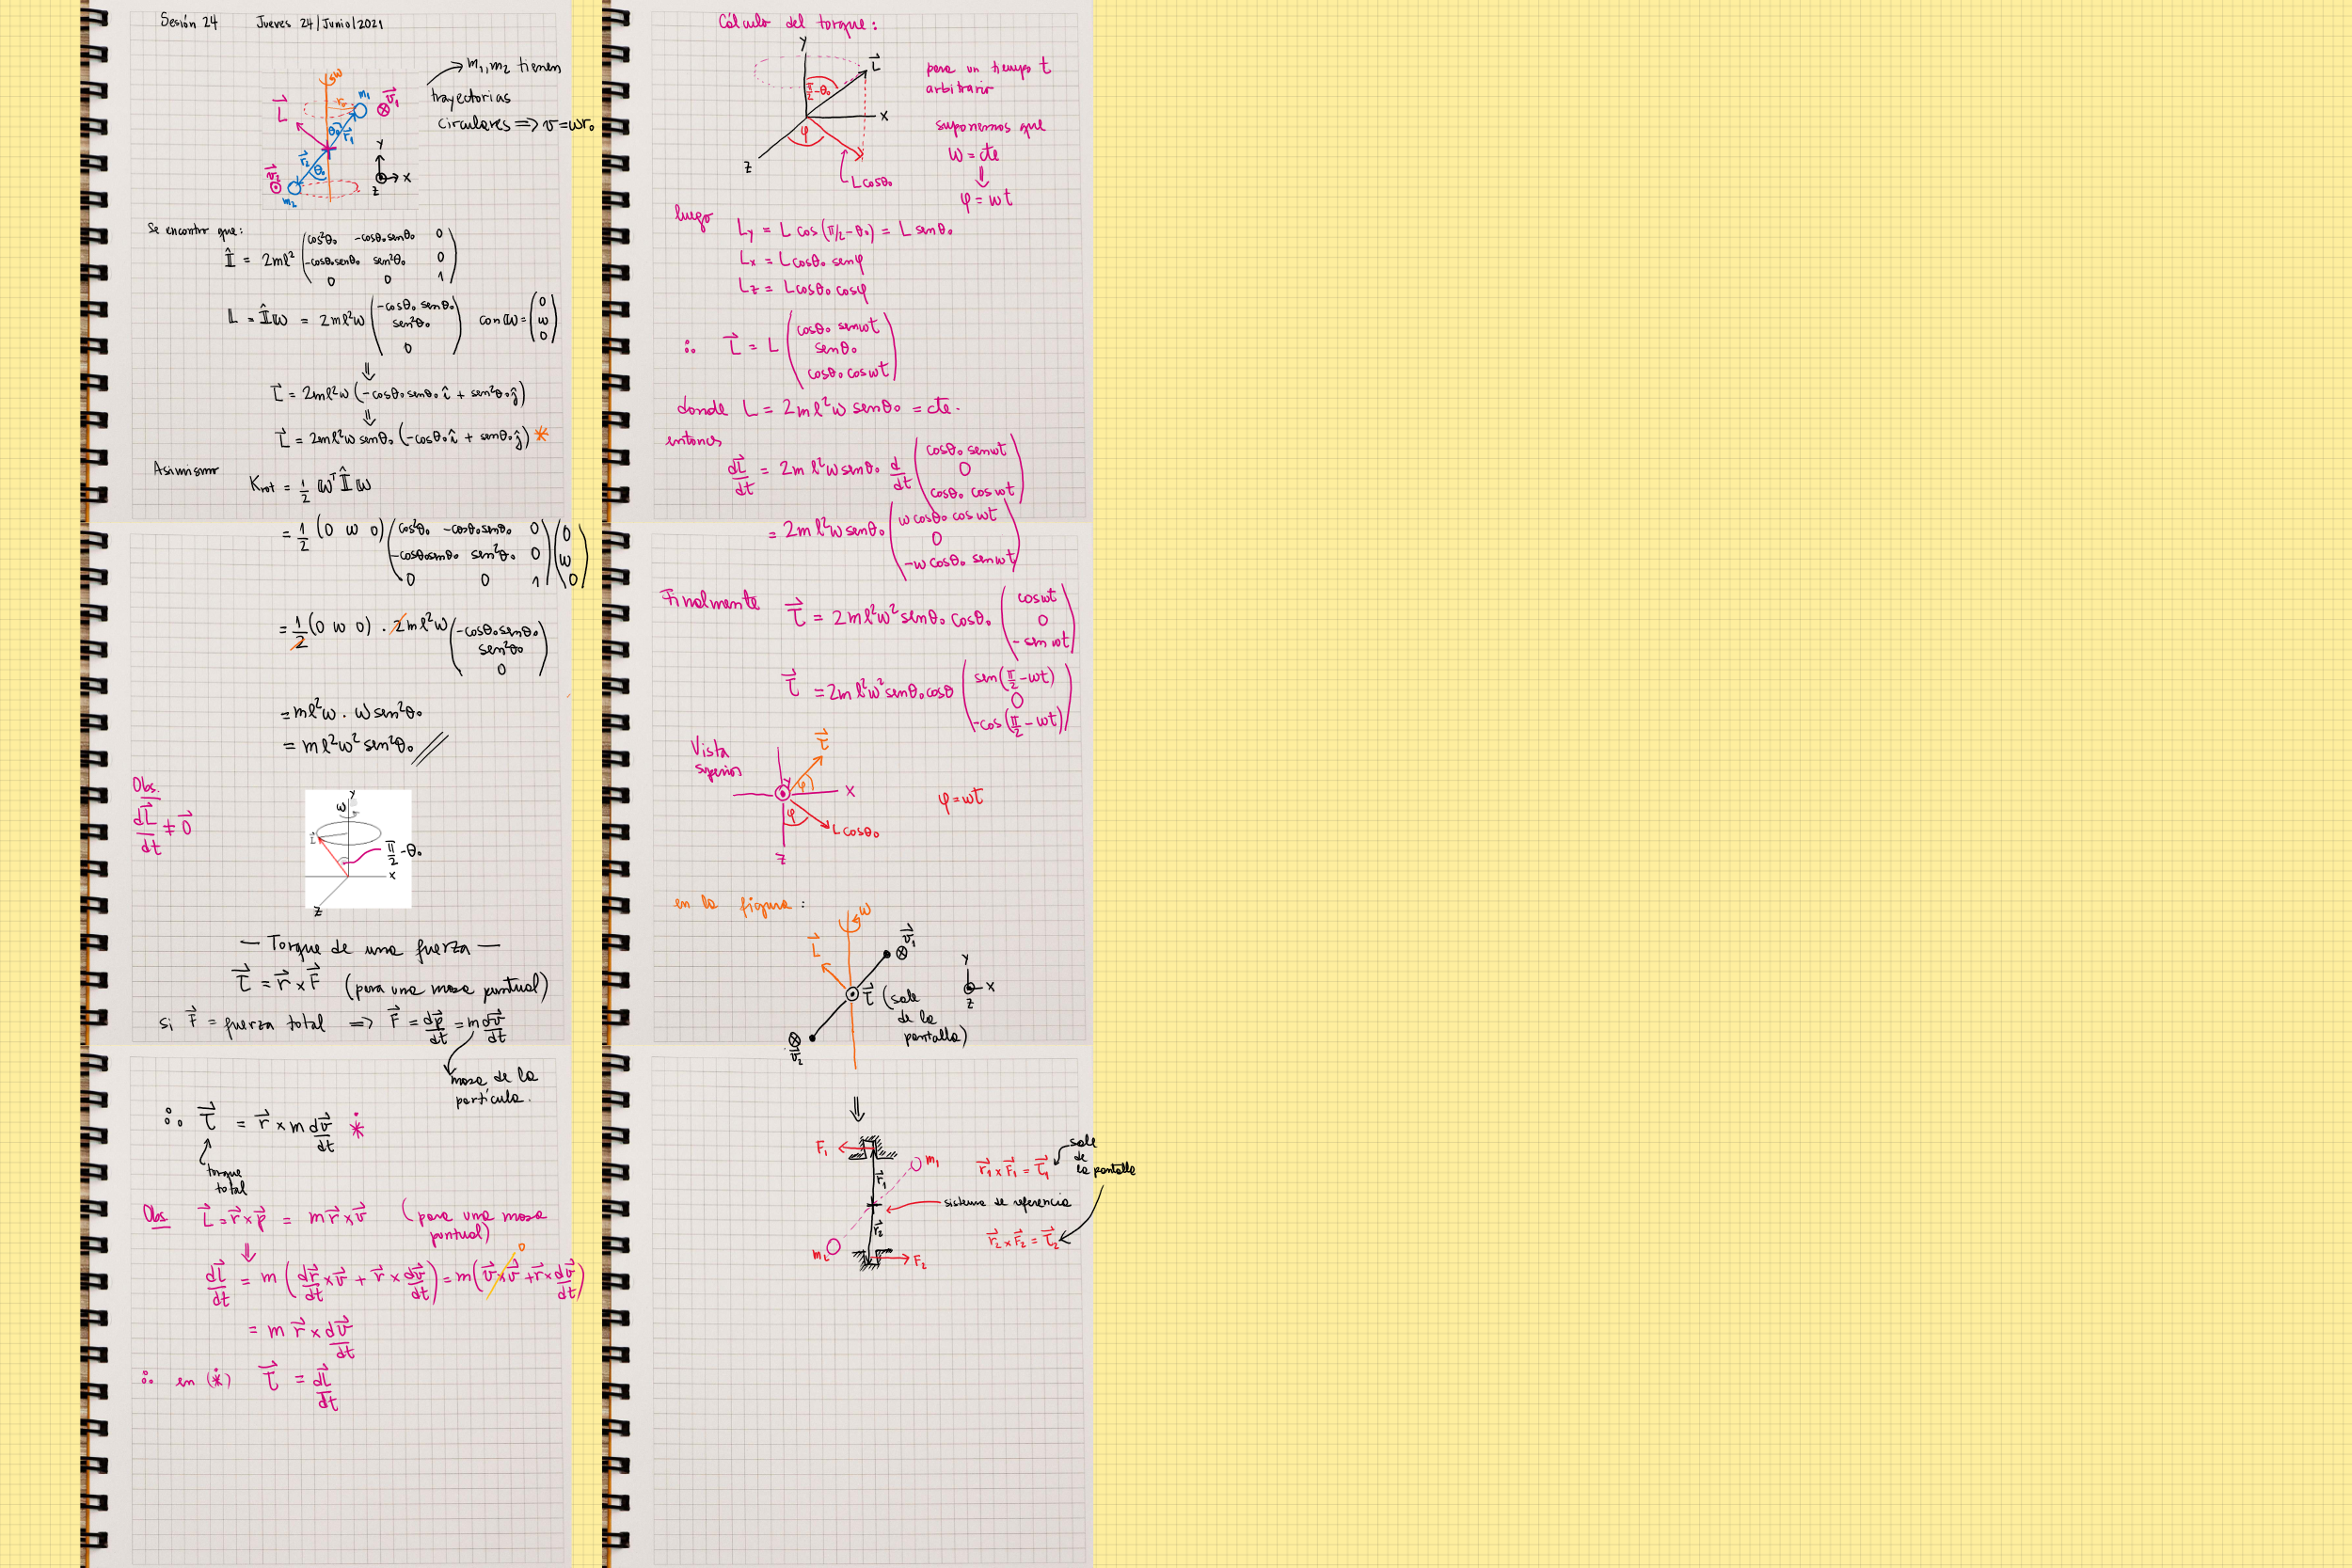 Sesión 24 Jueves 24/Junio/2021
m₁, m₂ tienen
trayectorias
circulares ⟹ v = ωr₀
ω
L⃗
r₀
m₁
v⃗₁
θ₀
r⃗₁
r⃗₂
θ₀
v⃗₂
m₂
Y
X
Z
Se encontró que:
Î = 2ml² (cos²θ₀ -cosθ₀ senθ₀ 0
-cosθ₀ senθ₀ sen²θ₀ 0
0 0 1)
𝕃 = Î𝕨 = 2ml²ω (-cosθ₀ senθ₀
sen²θ₀
0) con 𝕨 = (0
ω
0)
⇓
L⃗ = 2ml²ω (-cosθ₀ senθ₀ î + sen²θ₀ ĵ)
⇓
L⃗ = 2ml²ω senθ₀ (-cosθ₀ î + senθ₀ ĵ) *
Asimismo
K_rot = 1/2 𝕨ᵀ Î 𝕨
= 1/2 (0 ω 0) (cos²θ₀ -cosθ₀ senθ₀ 0
-cosθ₀ senθ₀ sen²θ₀ 0
0 0 1) (0
ω
0)
= 1/2 (0 ω 0) · 2ml²ω (-cosθ₀ senθ₀
sen²θ₀
0)
= ml²ω · ω sen²θ₀
= ml²ω² sen²θ₀ //
Obs.
dL⃗/dt ≠ 0⃗
Y
ω
L⃗
π/2 - θ₀
X
Z
— Torque de una fuerza —
τ⃗ = r⃗ × F⃗ (para una masa puntual)
si F⃗ = fuerza total ⟹ F⃗ = dp⃗/dt = m dv⃗/dt
masa de la
partícula.
∴ τ⃗ = r⃗ × m dv⃗/dt *
torque
total
Obs L⃗ = r⃗ × p⃗ = m r⃗ × v⃗ (para una masa
puntual)
⇓
dL⃗/dt = m (dr⃗/dt × v⃗ + r⃗ × dv⃗/dt) = m (v⃗ × v⃗ + r⃗ × dv⃗/dt)
0
= m r⃗ × dv⃗/dt
∴ en (*) τ⃗ = dL⃗/dt
Cálculo del torque:
Y
L⃗
π/2 - θ₀
X
φ
Z
L cosθ₀
para un tiempo t
arbitrario
suponemos que
ω = cte
⇓
φ = ωt
luego
Ly = L cos(π/2 - θ₀) = L senθ₀
Lx = L cosθ₀ senφ
Lz = L cosθ₀ cosφ
∴ L⃗ = L (cosθ₀ senωt
senθ₀
cosθ₀ cosωt)
donde L = 2ml²ω senθ₀ = cte.
entonces
dL⃗/dt = 2ml²ω senθ₀ d/dt (cosθ₀ senωt
0
cosθ₀ cosωt)
= 2ml²ω senθ₀ (ω cosθ₀ cosωt
0
-ω cosθ₀ senωt)
Finalmente τ⃗ = 2ml²ω² senθ₀ cosθ₀ (cosωt
0
-senωt)
τ⃗ = 2ml²ω² senθ₀ cosθ (sen(π/2 - ωt)
0
-cos(π/2 - ωt))
Vista
superior
τ⃗
Y
φ
X
φ
L cosθ₀
Z
φ = ωt
en la figura:
ω
L⃗
v⃗₁
τ⃗ (sale
de la
pantalla)
v⃗₂
Y
X
Z
⇓
F₁
m₁
r⃗₁
r⃗₁ × F⃗₁ = τ⃗₁
sale
de
la pantalla
sistema de referencia
r⃗₂
r⃗₂ × F⃗₂ = τ⃗₂
m₂
F₂